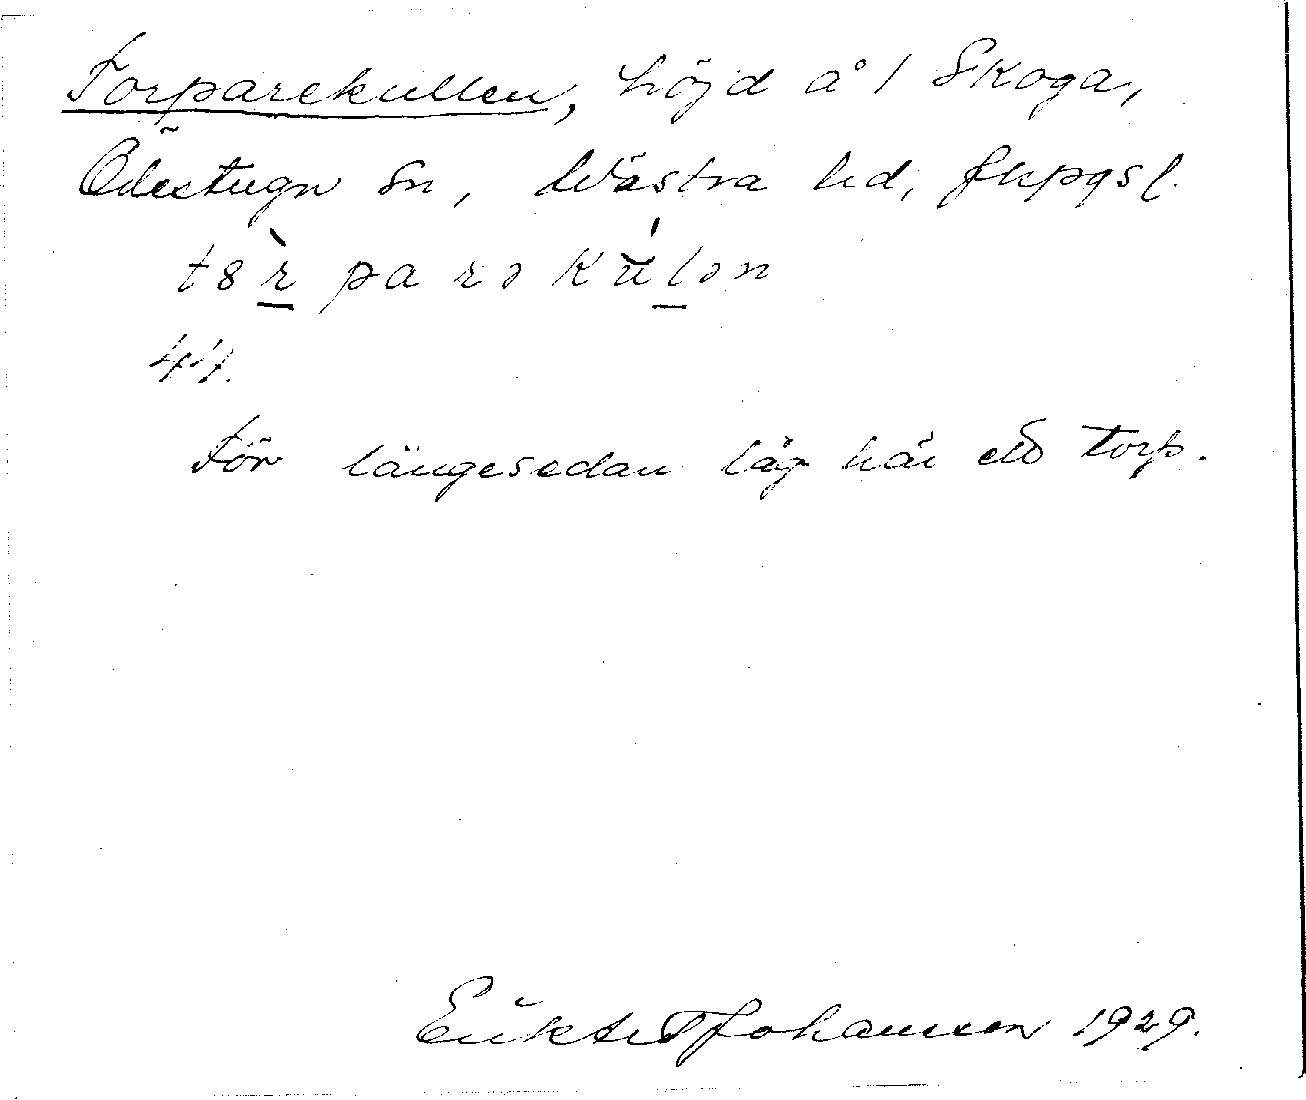 Torparekullen, höjd å 1 Skoga,
Ödestugu sn, Västra hd, Jkpgs l.
t8r parəkulən
41.
För längesedan låg här ett torp.
Johansson 1929.